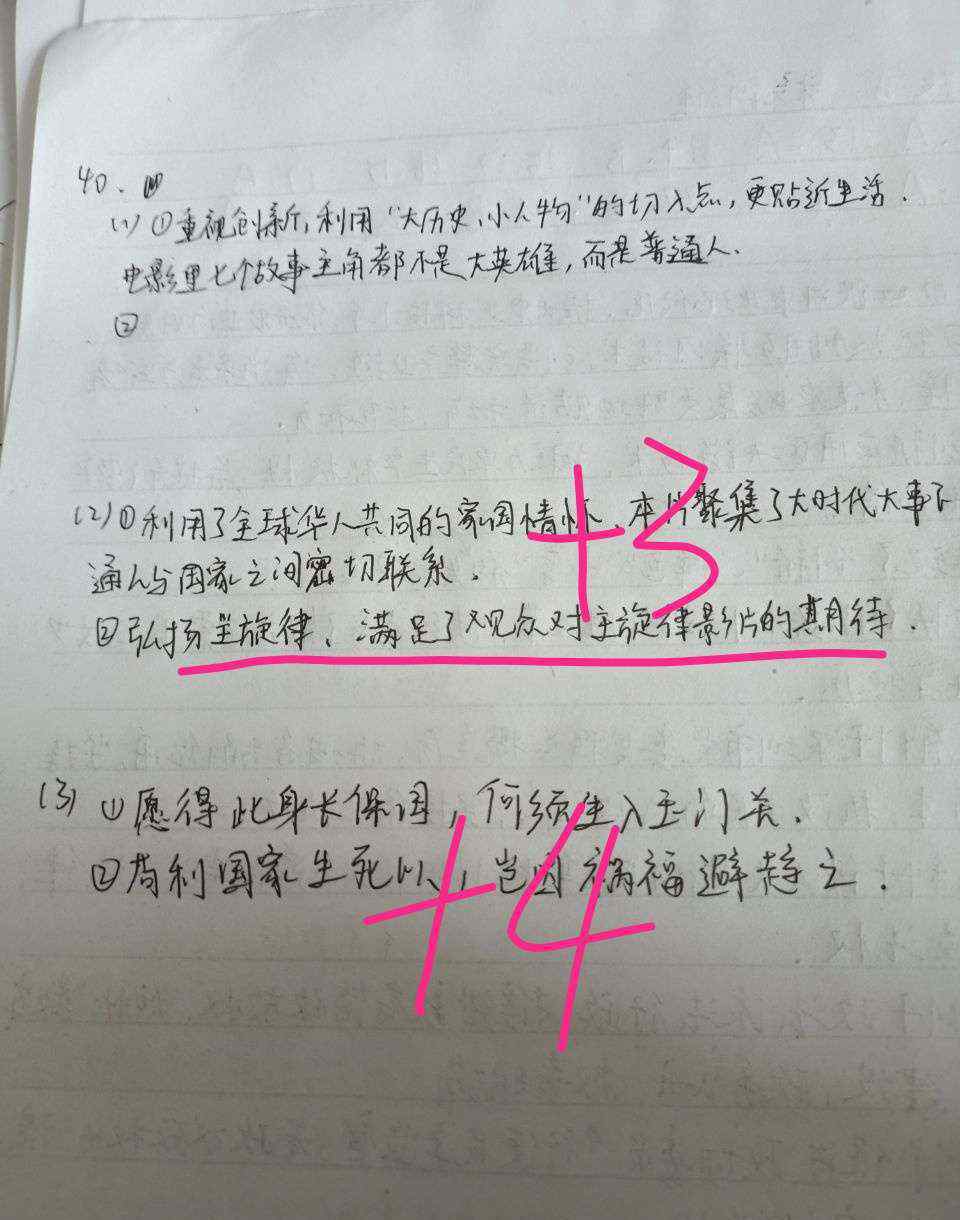 40.
(1) ①重视创新,利用“大历史,小人物”的切入点,更贴近生活.
电影里七个故事主角都不是大英雄,而是普通人.
②
(2) ①利用了全球华人共同的家国情怀、本片聚集了大时代大事下
通人与国家之间密切联系.
②弘扬主旋律、满足了观众对主旋律影片的期待.
+3
(3) ①愿得此身长保国,何须生入玉门关.
②苟利国家生死以,岂因祸福避趋之.
+4